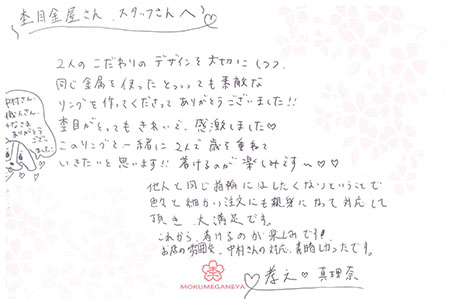 杢目金屋さん、スタッフさんへ♡
2人のこだわりのデザインを大切にしつつ、
同じ金属を使ったとっっても素敵な
リングを作ってくださってありがとうございました!!
杢目がとってもきれいで、感激しました♡
このリングと一緒に2人で歳を重ねて
いきたいと思います!! 着けるのが楽しみです〜♡♡
中村さん、
職人さん、
みなさま
ありがとう
ござい
ました。
他人と同じ指輪にはしたくないということで
色々と細かい注文にも親身になって対応して
頂き、大満足です。
これから、着けるのが楽しみです!
お店の雰囲気、中村さんの対応、素晴しかったです。
♡孝之♡真理奈
MOKUMEGANEYA